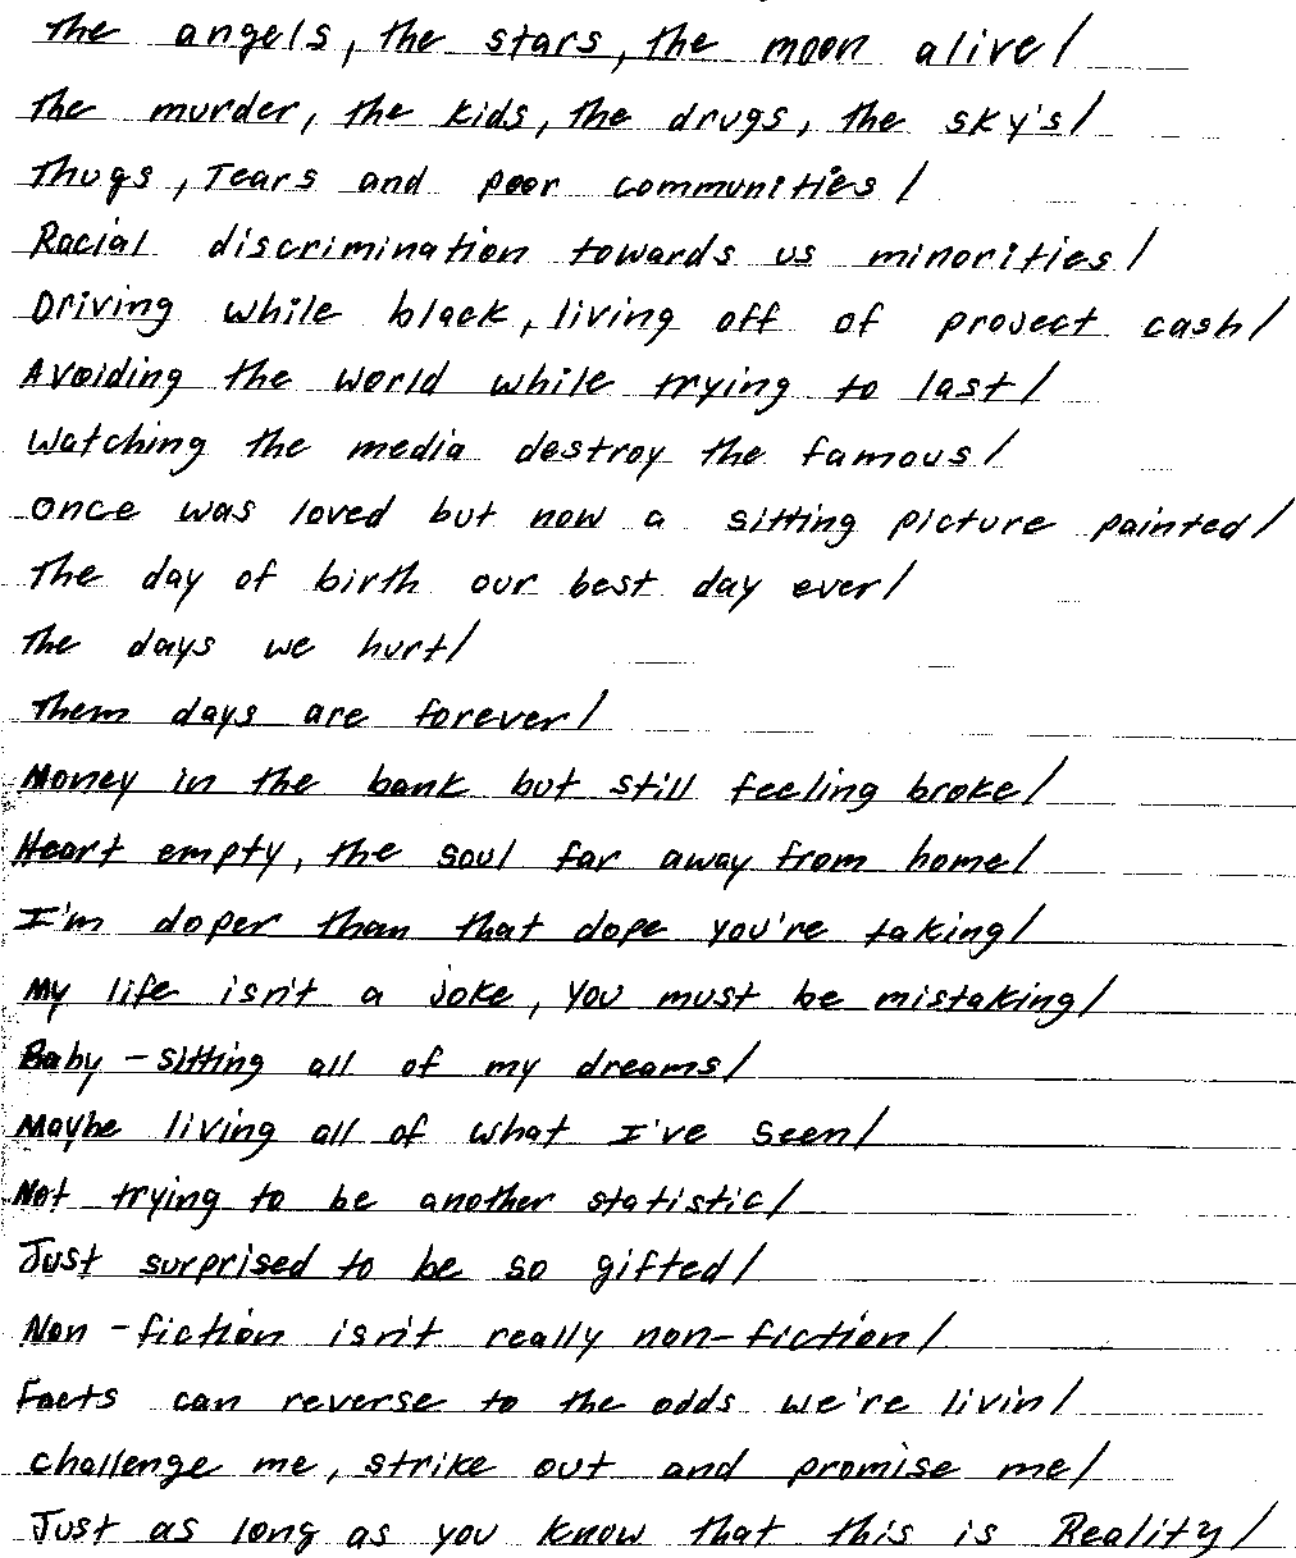 The angels, the stars, the moon alive/
The murder, the kids, the drugs, the sky's/
Thugs, Tears and poor communities/
Racial discrimination towards us minorities/
Driving while black, living off of project cash/
Avoiding the world while trying to last/
Watching the media destroy the famous/
Once was loved but now a sitting picture painted/
The day of birth our best day ever/
The days we hurt/
Them days are forever/
Money in the bank but still feeling broke/
Heart empty, the soul far away from home/
I'm doper than that dope you're taking/
My life isn't a joke, you must be mistaking/
Baby-sitting all of my dreams/
Maybe living all of what I've seen/
Not trying to be another statistic/
Just surprised to be so gifted/
Non-fiction isn't really non-fiction/
Facts can reverse to the odds we're livin/
challenge me, strike out and promise me/
Just as long as you know that this is Reality/